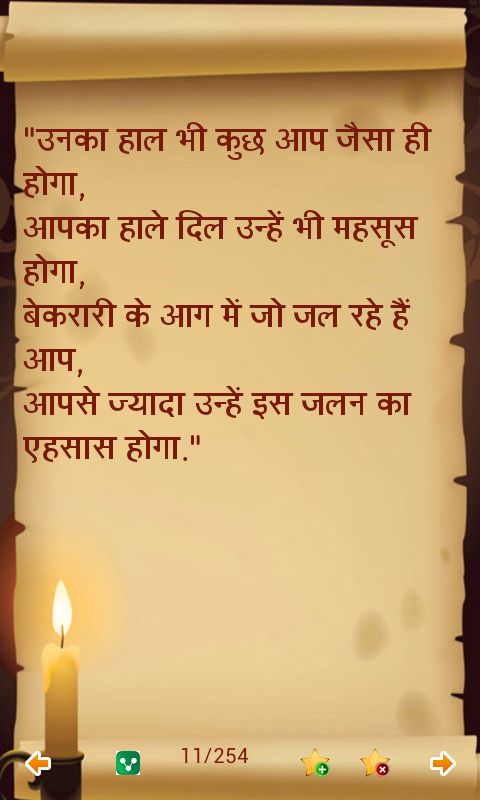 "उनका हाल भी कुछ आप जैसा ही
होगा,
आपका हाले दिल उन्हें भी महसूस
होगा,
बेकरारी के आग में जो जल रहे हैं
आप,
आपसे ज्यादा उन्हें इस जलन का
एहसास होगा."
11/254